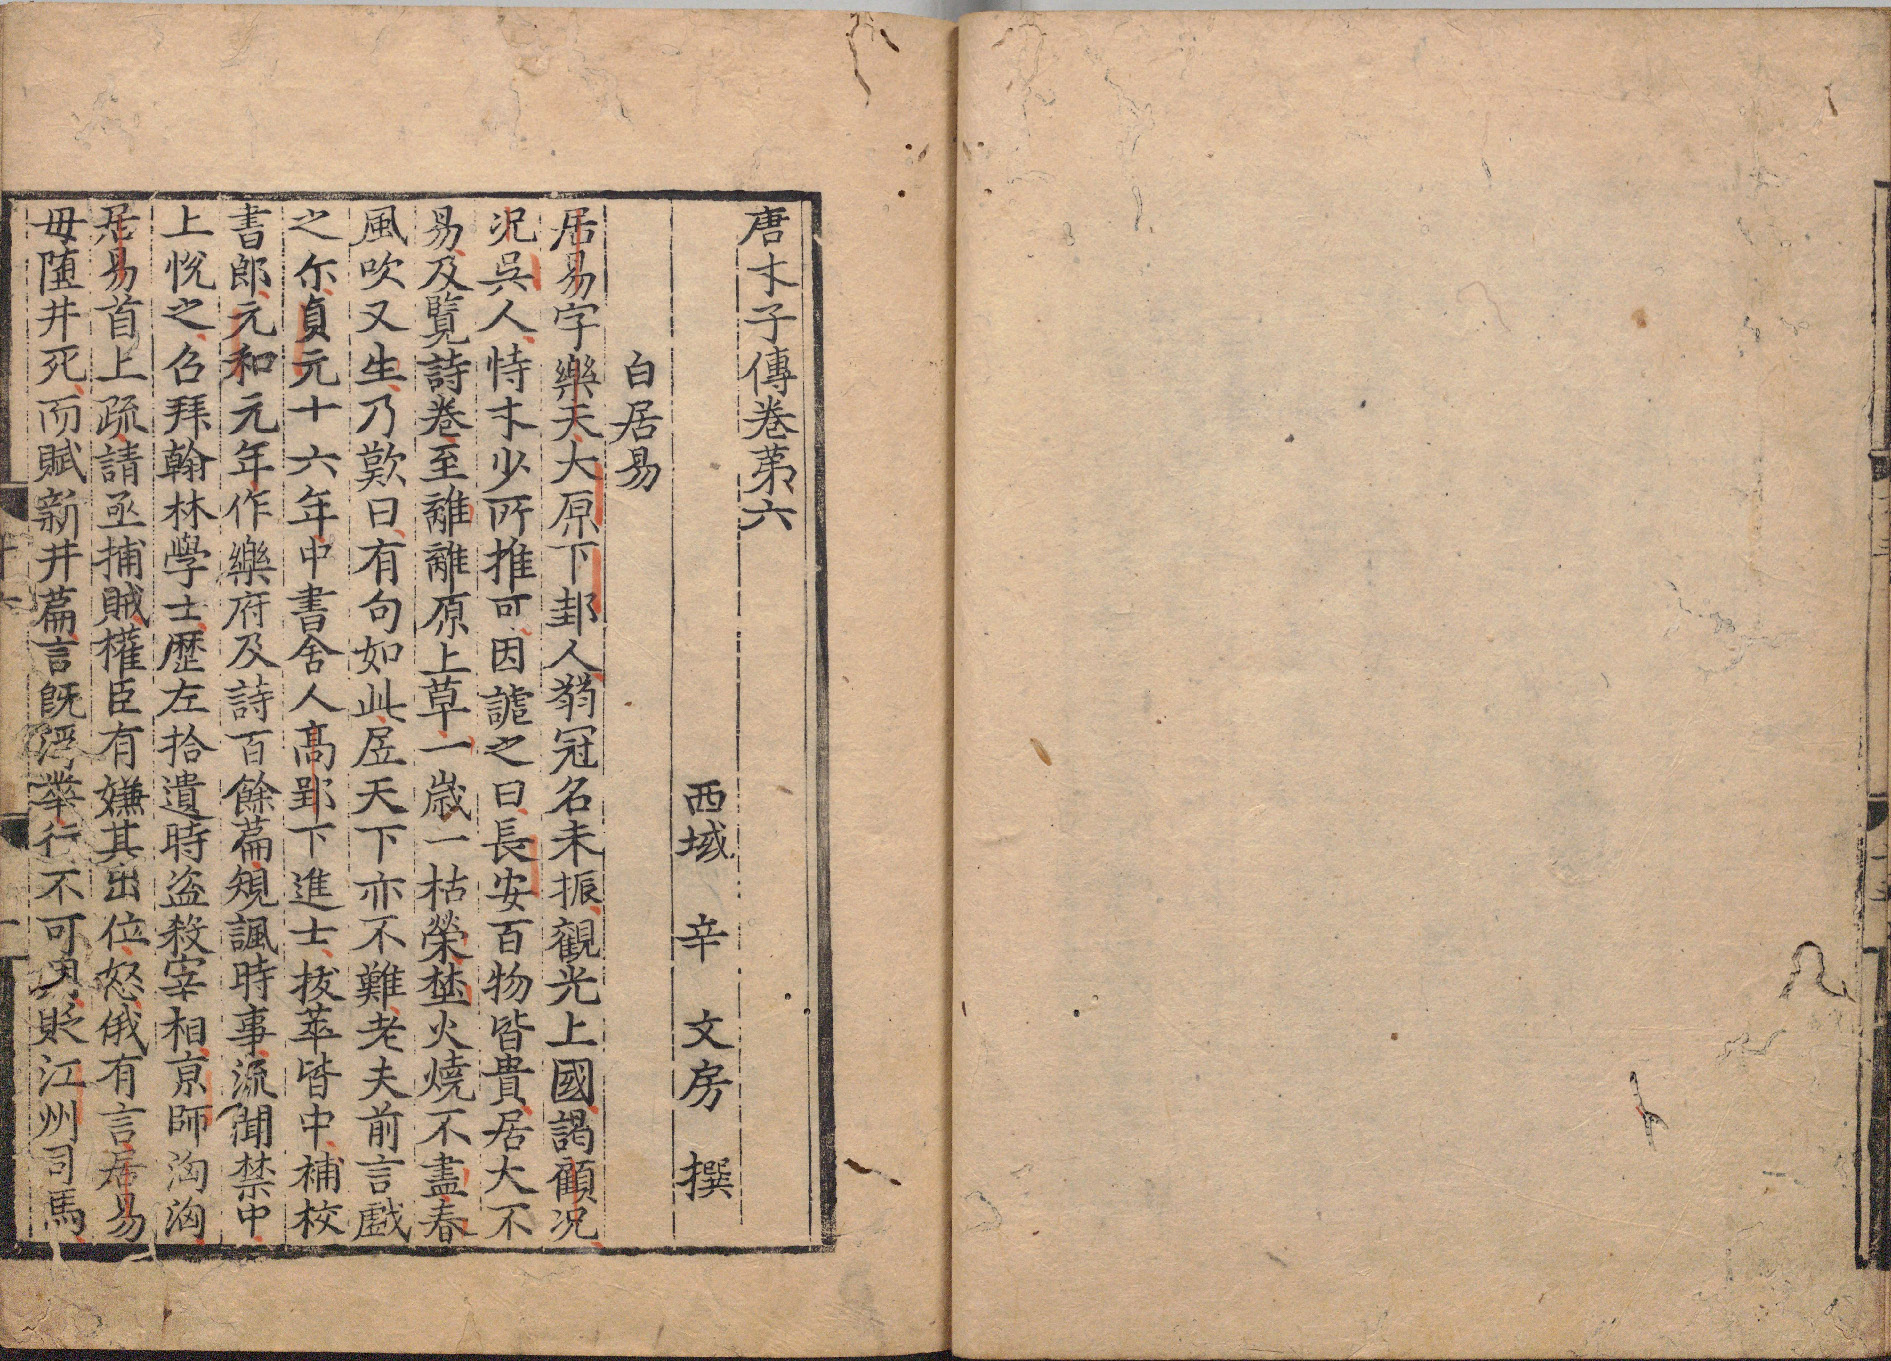 唐才子傳卷第六
西域 辛 文房 撰
白居易
居易字樂天大原下邽人弱冠名未振觀光上國謁顧况
况吳人恃才少所推可因謔之曰長安百物皆貴居大不
易及覽詩卷至離離原上草一歲一枯榮埜火燒不盡春
風吹又生乃歎曰有句如此居天下亦不難老夫前言戲
之尓貞元十六年中書舍人高郢下進士拔萃皆中補校
書郎元和元年作樂府及詩百餘篇規諷時事流聞禁中
上悅之召拜翰林學士歷左拾遺時盗殺宰相京師洶洶
居易首上疏請亟捕賊權臣有嫌其出位怒俄有言居易
母墮井死而賦新井篇言旣浮華行不可用貶江州司馬